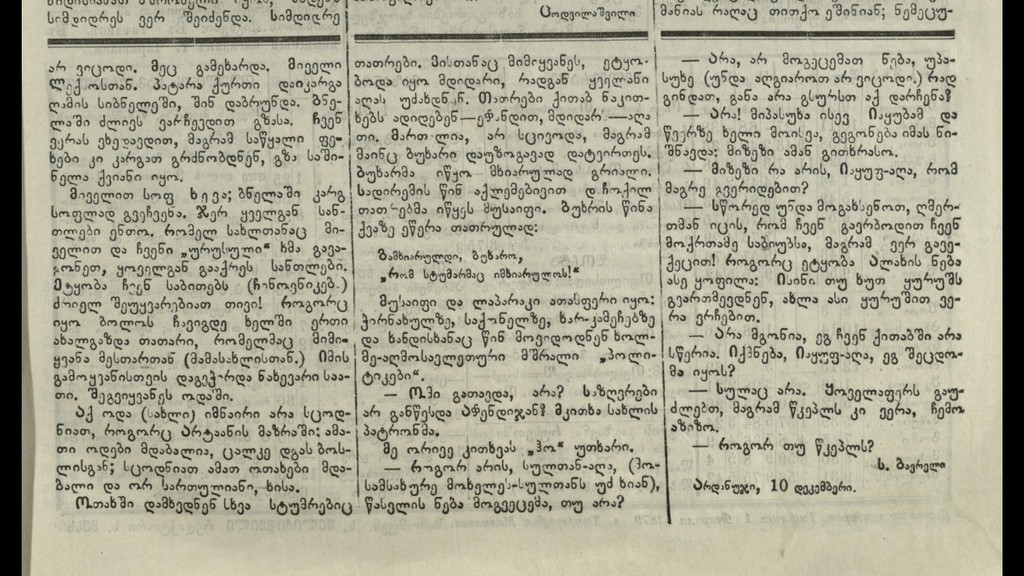 სიმდიდრეს ვერ შეიძენდა. სიმდიდრე
არ ვიცოდი. მეც გამეხარდა. მივველი
ღამის სიბნელეში, შინ დაბრუნდა. ბნე-
ლაში ძლივს ვარჩევდით გზასა. ჩვენ
ვერას ვხედავდით, მაგრამ საწყალი ფე-
ხები კი კარგათ გრძნობდნენ, გზა საში-
ნელა ქვიანი იყო.
მივველით სოფ ხევა; ბნელაში კარგ
სოფლად გვეჩვენა. ჯერ ყველგან სან-
თლები ენთო. რომელ სახლთანაც მი-
ველით და ჩვენი „ურუსული“ ხმა გავა-
გონეთ, ყოველგან გააქრეს სანთლები.
ეტყობა ჩვენ საბითებს (ჩინოვნიკებ.)
ძრიელ შეუყვარებიათ თივი! როგორც
იყო ბოლოს ჩავიგდე ხელში ერთი
ახალგაზდა თათარი, რომელმაც მიმი-
ყვანა მესტართან (მამასახლისთან.) იმის
გამოყვანისთვის დაგვჭირდა ნახევარი საა-
თი. შეგვიყვანეს ოდაში.
აქ ოდა (სახლი) იმნაირი არა სცოდ-
ნიათ, როგორც არტაანის მაზრაში: ამა-
თი ოდები მდაბალია, ცალკე დგას ბოს-
ლისგან; სცოდნიათ ამათ ოთახები მდა-
ბალი და ორ სართულიანი, ხისა.
ოთახში დამხვდნენ სხვა სტუმრებიც
ცოდვილაშვილი
თათრები. მისთანაც მიმიყვანეს, ეტყო-
ბოდა იყო მდიდარი, რადგან ყველანი
აღას უძახდნენ. თათრები ქითაბ ნაკით-
ხებს ადიდებენ—ეფენდით, მდიდარს—აღა
თი. მართლია, არ სცივოდა, მაგრამ
მაინც ბუხარი დაუზოგავად დატვირთეს.
ბუხარმა იწყო მხიარულად გრიალი.
სადირემის წინ აქლემებივით დაჩოქილ
თათრებმა იწყეს მუსაიფი. ბუხრის წინა
ქვაზე ეწერა თათრულად:
გამხიარულდი, ბუხარო,
„რომ სტუმარმაც იმხიარულოს!“
მუსაიფი და ლაპარაკი ათასფერი იყო:
ჭირნახულზე, საქონელზე, ხარ-კამეჩებზე
და ხანდისხანაც წინ მოვიდოდნენ ხოლ-
მე-აღმოსავლეთური მშრალი „პოლი-
ტიკები“.
— ომი გათავდა, არა? საზღვრები
არ განწესდა აფენდიჯან? მკითხა სახლის
პატრონმა.
მე ორივე კითხვას „ჰო“ უთხარი.
— როგორ არის, სულთან-აღა, (მო-
სამსახურე მოხელეს-სულთანს უძახიან),
წასვლის ნება მოგვეცემა, თუ არა?
მანიას რაღაც თითქო ეშინიან; ნემეცუ-
— არა, არ მოგეცემათ ნება, უპა-
სუხე (უნდა აღგიაროთ არ ვიცოდი.) რად
გინდათ, განა არა გსურსთ აქ დარჩენა?
— არა! მიპასუხა ისევ იაყუბამ და
წვერზე ხელი მოისვა, გეგონება იმას ნი-
შნავდა: მიზეზი ამან გითხრასო.
— მიზეზი რა არის, იაყუფ-აღა, რომ
მაგრე გვერიდებით?
— სწორედ უნდა მოგახსენოთ, ღმერ-
თმან იცის, რომ ჩვენ გავრბოდით ჩვენ
მოქრთამე საბიუბსა, მაგრამ ვერ გავე-
ქეცით! როგორც ეტყობა ალახის ნება
ასე ყოფილა: ისინი თუ ხუთ ყურუშს
გვართმევდნენ, ახლა ასი ყურუშით ვე-
რა ვრჩებით.
— არა მგონია, ეგ ჩვენ ქითაბში არა
სწერია. იქმნება, იაყუფ-აღა, ეგ შეცდო-
მა იყოს?
— სულაც არა. ყოველაფერს გაუ-
ძლებთ, მაგრამ წკეპლს კი ვერა, ჩემო
აზიზო.
— როგორ თუ წკეპლს?
ს. ბავრელი
არდანუჯი, 10 დეკემბერი.